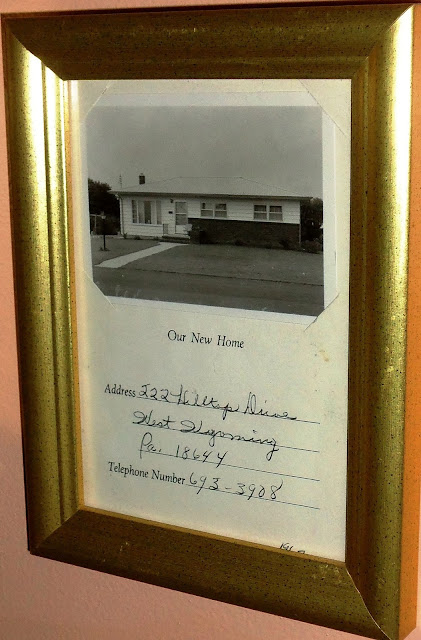 Our New Home
Address 222 Hilltop Drive
West Wyoming
Pa. 18644
Telephone Number 693-3908